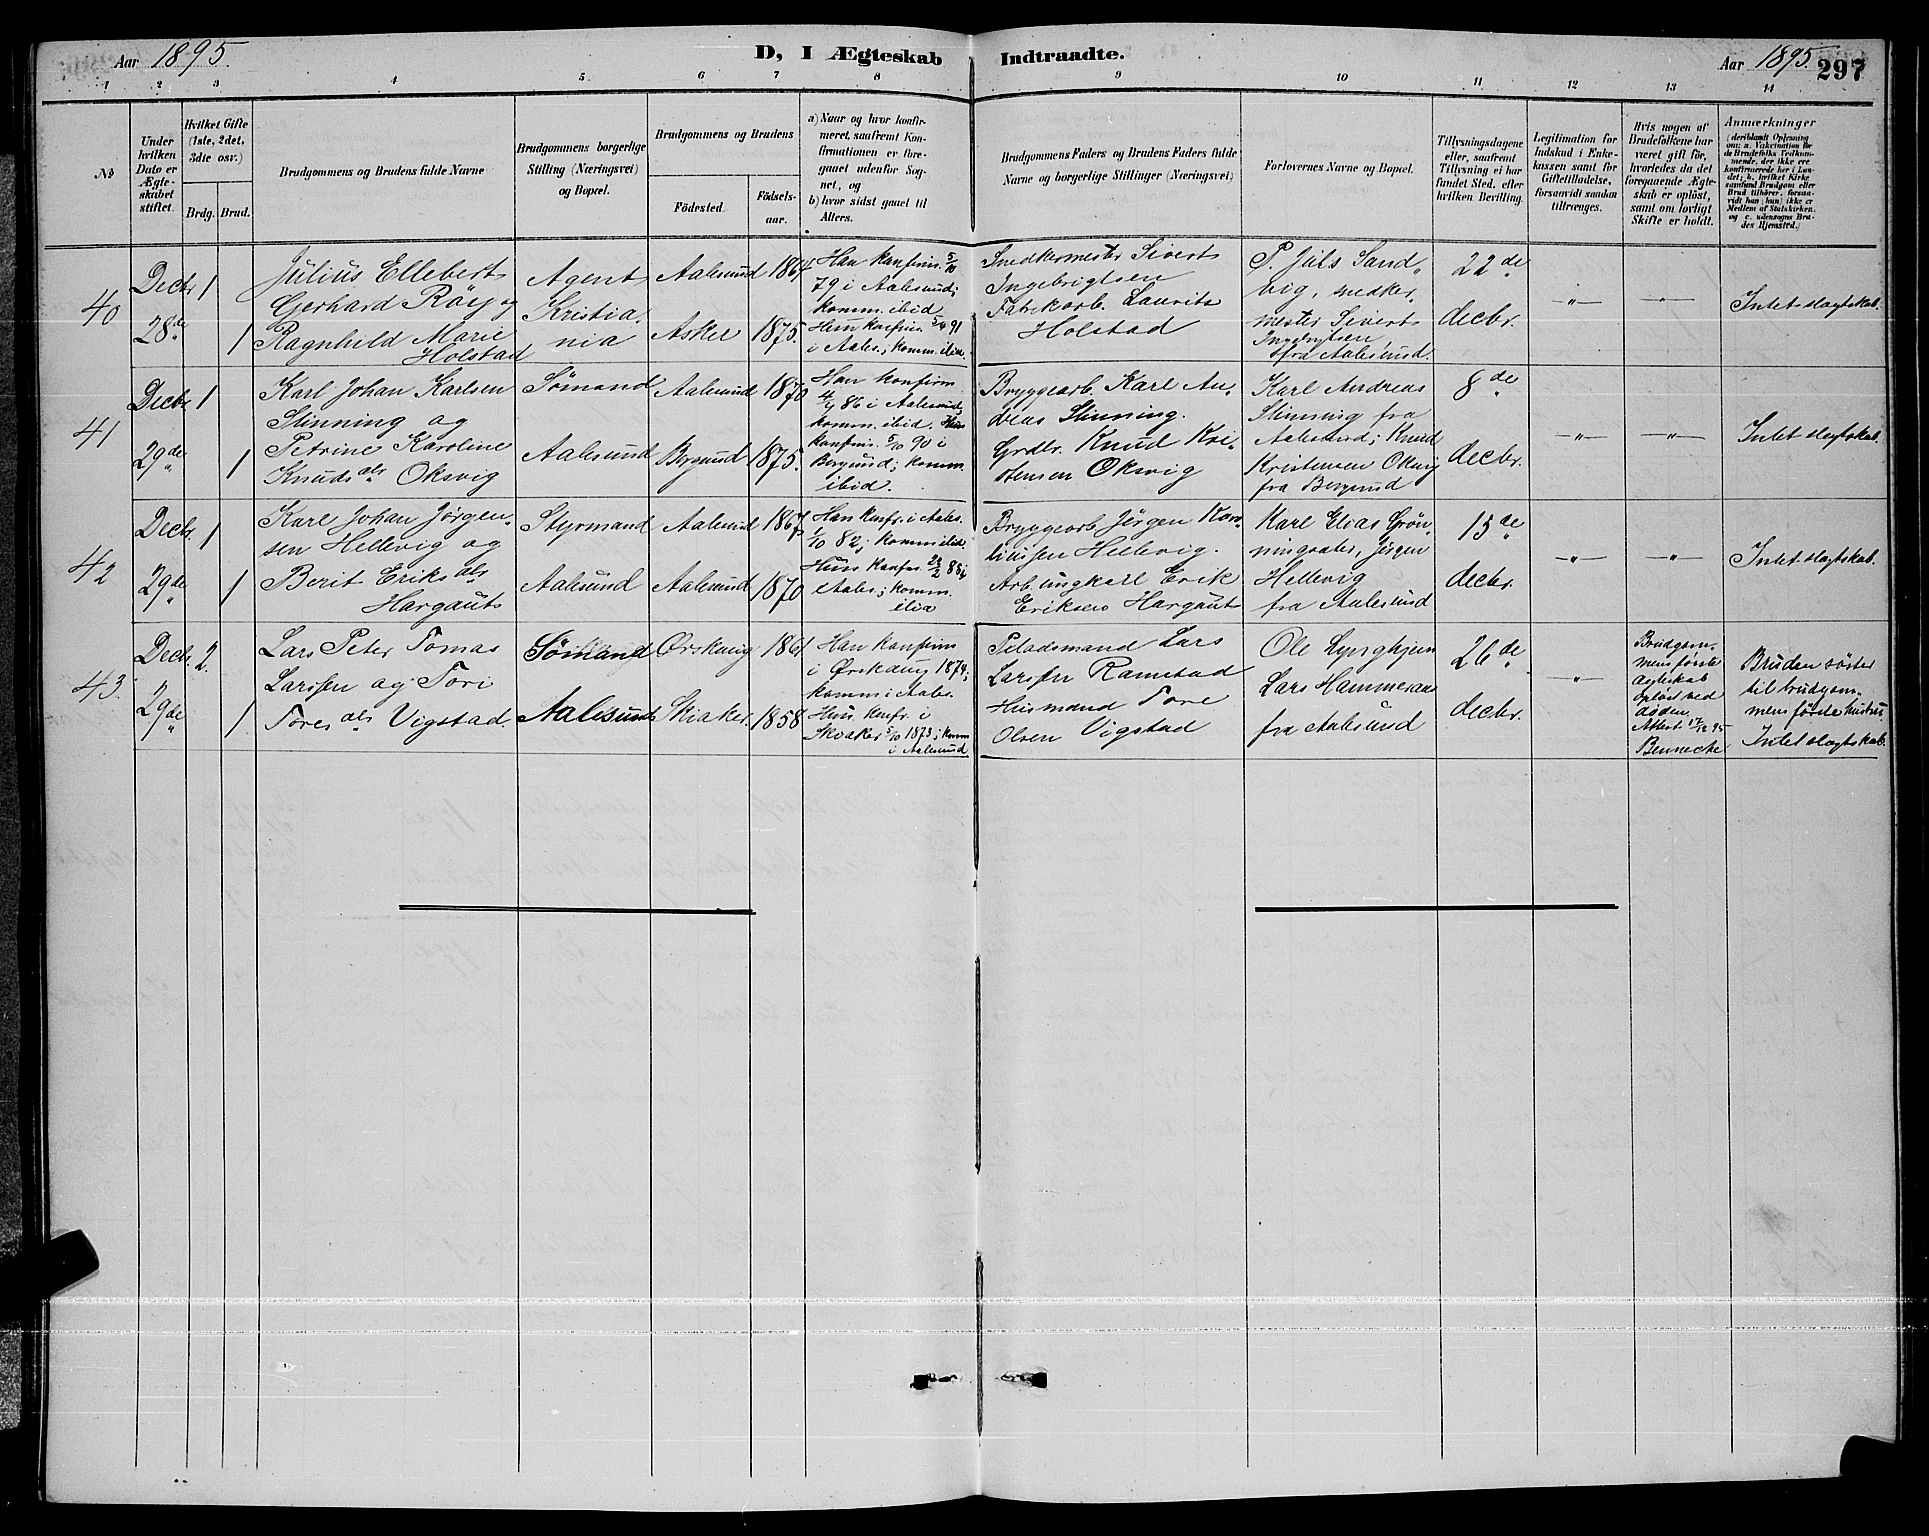 Aar 1895.
D, I Ægteskab Indtraadte.
Aar 1895.
297
1 2 3 4 5 6 7 8 9 10 11 12 13 14
No
Under hvilken Dato er Ægteskabet stiftet.
Hvilket Gifte (1ste, 2det, 3die osv.)
Brdg. Brud.
Brudgommens og Brudens fulde Navne
Brudgommens borgerlige Stilling (Næringsvei) og Bopæl.
Brudgommens og Brudens
Födested. Födsels-aar.
a) Naar og hvor konfirmeret, saafremt Konfirmationen er foregaaet udenfor Sognet, og
b) hvor sidst gaaet til Alters.
Brudgommens Faders og Brudens Faders fulde Navne og borgerlige Stillinger (Næringsvei)
Forlovernes Navne og Bopæl.
Tillysningsdagene eller, saafremt Tillysning ei har fundet Sted, efter hvilken Bevilling.
Legitimation for Indskud i Enkekassen samt for Giftetilladelse, forsaavidt saadan tiltrænges.
Hvis nogen af Brudefolkene har været gift för, hvorledes da det foregaaende Ægteskab er oplöst, samt om lovligt Skifte er holdt.
Anmærkninger
40
Decbr 28de
1
1
Julius Ellebert
Gerhard Röry og
Ragnhild Marie
Holstad
Agent
Kristia
nia
Aalesund 1864
Asker 1875.
Han konfirm. 5/10
79 i Aalesund;
komm. ibid.
Hun konfirm. 5/4 91
i Aales.; komm. ibid.
Snedkermester Sivert
Ingebrigtsen
Fabrikarb. Laurits
Holstad
P. Juls Sand
vig, snedker
mester Sivert
Ingebrigtsen,
fra Aalesund.
22de
decbr.
"
"
Intet slagtskab.
41
Decbr 29de
1
1
Karl Johan Karlsen
Slinning og
Petrine Karoline
Knudsdtr Oksvig
Sömand
Aalesund
Aalesund 1870
Borgund 1875.
Han konfirm
86 i Aalesund;
komm. ibid. Hun
konfirm. 5/10 90 i
Borgund; komm.
ibid.
Bryggearb. Karl An
dreas Slinning.
Grdbr. Knud Kri
stensen Oksvig
Karl Andreas
Slinning fra
Aalesund; Knud
Kristensen Oksvig
fra Borgund
8de
decbr.
"
"
Intet slagtskab.
42
Decbr. 29de
1
1
Karl Johan Jörgen
sen Hellevig og
Berit Eriksdtr
Hargaut
Styrmand
Aalesund
Aalesund 1867
Aalesund 1870
Han konfr. i Aales.
1/10 82; komm ibid.
Hun konfir. 88 i
Aales.; komm.
ibid
Bryggearb Jörgen
Hellevig.
Arb. ungkarl Erik
Eriksen Hargaut
Karl Elias Grön
ningsæter, Jörgen
Hellevig
fra Aalesund
15de
decbr.
"
"
Intet slagtskab.
43.
Decbr. 29de
2.
1
Lars Peter Tomas
Larsen og Tori
Toresdtr Vigstad
Sömand
Aalesund
Ørskoug 1861
Skiaker 1858
Han konfirm
i Ørskoug 1874;
komm i Aales.
Hun konfr. i
Skiaker 5/10 1873; komm
i Aalesund
Pladsmand Lars
Larsen Ramstad
Husmand Tore
Olsen Vigstad
Ole Lynghjem
Lars Hammeraas
fra Aalesund
26de
decbr.
"
Brudgom
mens förste
ægteskab
oplöst ved
döden.
Attest 17/12 95
Bennecke
Bruden söster
til brudgom
mens förste hustru
Intet slagtskab.